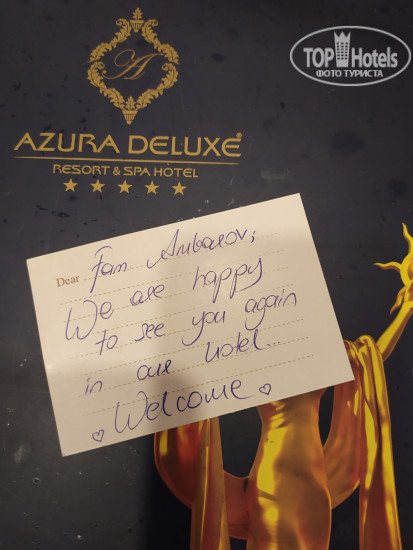 TOP Hotels
ФОТО ТУРИСТА
A
AZURA DELUXE®
RESORT & SPA HOTEL
Dear Fam Ambarov;
We are happy
to see you again
in our hotel...
Welcome